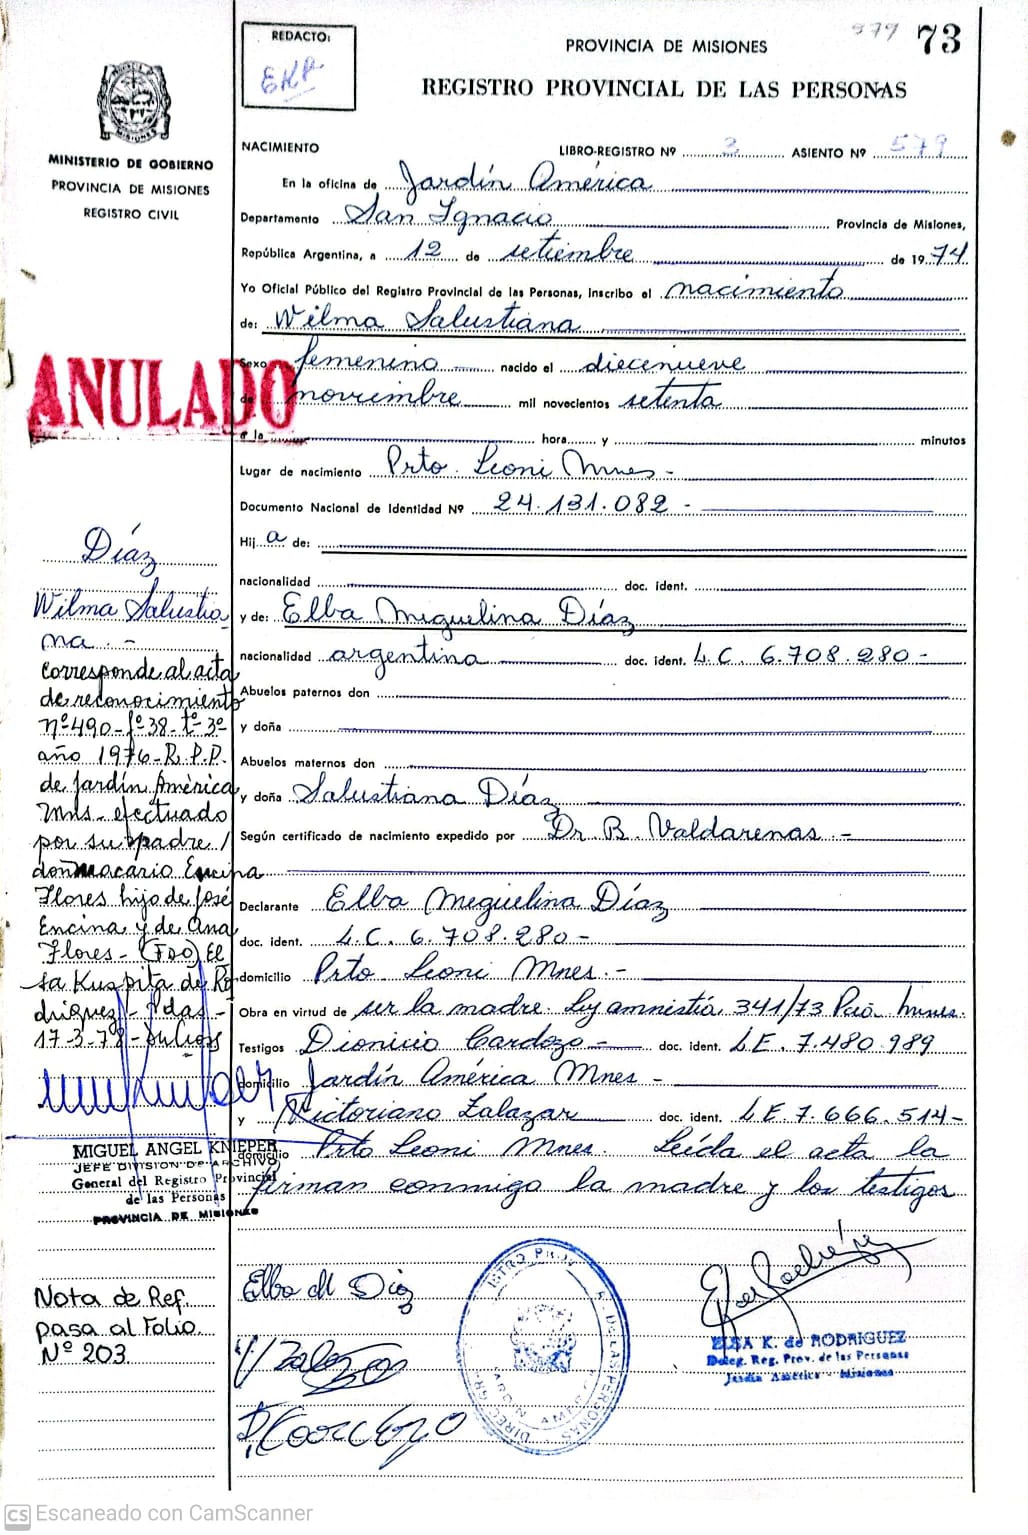 REDACTO:
EKR
979 73
PROVINCIA DE MISIONES
REGISTRO PROVINCIAL DE LAS PERSONAS
MISIONES
MINISTERIO DE GOBIERNO
PROVINCIA DE MISIONES
REGISTRO CIVIL
NACIMIENTO
LIBRO-REGISTRO Nº 3 ASIENTO Nº 579
En la oficina de Jardín América
Departamento San Ignacio Provincia de Misiones,
República Argentina, a 12 de setiembre de 1974
Yo Oficial Público del Registro Provincial de las Personas, inscribo el nacimiento
de: Wilma Salustiana
Sexo femenino nacido el diecenueve
de noviembre mil novecientos setenta
a la hora y minutos
ANULADO
Lugar de nacimiento Prto. Leoni Mnes -
Documento Nacional de Identidad Nº 24.131.082 -
Hij a de:
nacionalidad doc. ident.
y de: Elba Miguelina Díaz
nacionalidad argentina doc. ident. L.C. 6.708.280 -
Abuelos paternos don
y doña
Abuelos maternos don
y doña Salustiana Díaz
Según certificado de nacimiento expedido por Dr. B. Valdarenas. -
Declarante Elba Meguelina Díaz
doc. ident. L.C. 6.708.280 -
domicilio Prto. Leoni Mnes. -
Obra en virtud de ser la madre Ley amnistía 341/73 Pcia. Mnes.
Testigos Dionicio Cardozo - doc. ident. L.E. 7.480.989
domicilio Jardín América Mnes -
y Victoriano Zalazar doc. ident. L.E. 7.666.514 -
domicilio Prto Leoni Mnes. Leída el acta la
firman conmigo la madre y los testigos
Díaz
Wilma Salustia
na. -
Corresponde al acta
de reconocimiento
nº 490 - fº 38 - tº 3º
año 1976 - R.P.P.
de Jardín América
Mns - efectuado
por su padre /
don Macario Encina
Flores hijo de José
Encina y de Ana
Flores - (Fdo) El
sa Kuspita de Ro
driguez - Pdas -
17-3-78 -
MIGUEL ANGEL KNIEPER
JEFE DIVISION DE ARCHIVO
General del Registro Provincial
de las Personas
PROVINCIA DE MISIONES
Nota de Ref.
pasa al Folio.
Nº 203.
Elba M Diaz
V Zalazar
D. Cardozo
ELSA K. de RODRIGUEZ
Deleg. Reg. Prov. de las Personas
Jardín América - Misiones
CS Escaneado con CamScanner